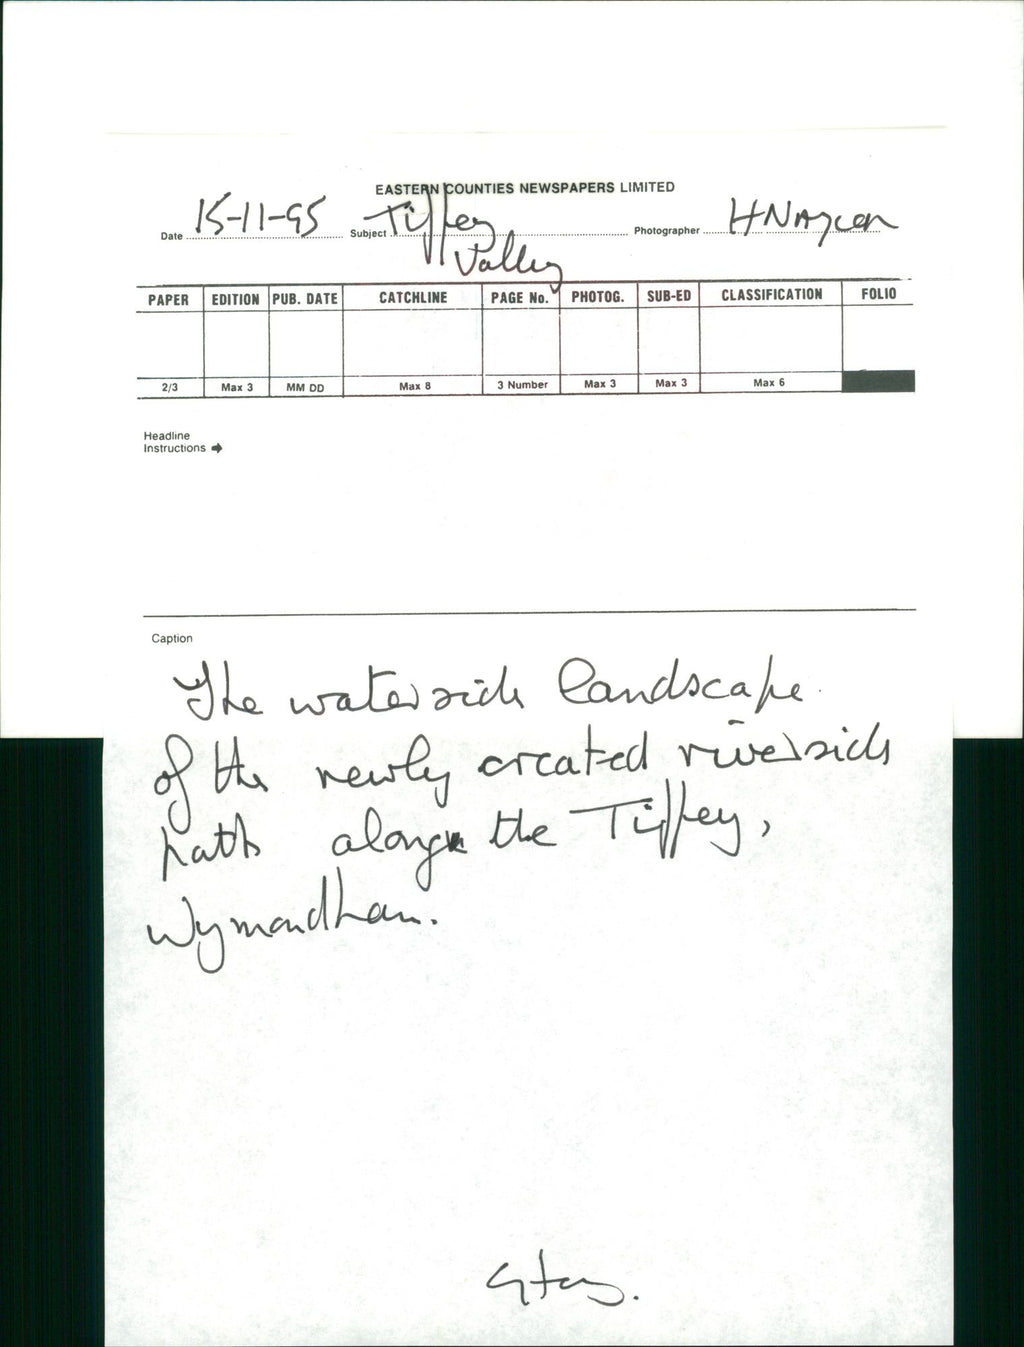 EASTERN COUNTIES NEWSPAPERS LIMITED
Date 15-11-95 Subject Tiffey Photographer
Valley
PAPER EDITION PUB. DATE CATCHLINE PAGE No. PHOTOG. SUB-ED CLASSIFICATION FOLIO
2/3 Max 3 MM DD Max 8 3 Number Max 3 Max 3 Max 6
Headline
Instructions
Caption
The waterside landscape
of the newly created riverside
path along the Tiffey,
Wymondham.